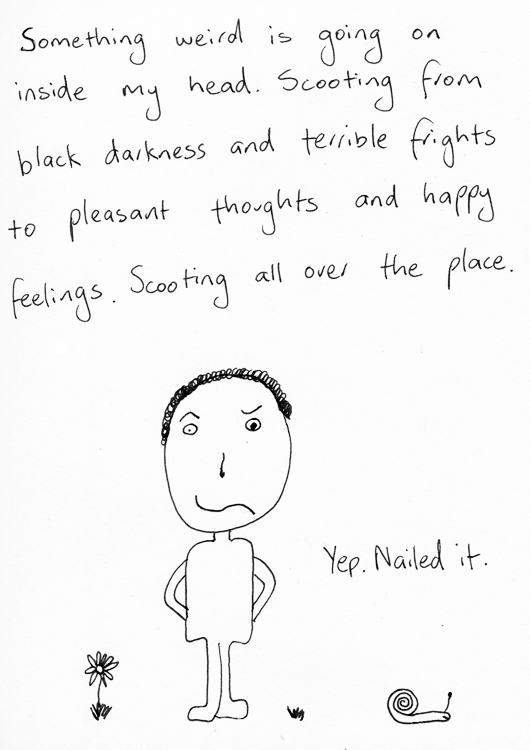 Something weird is going on
inside my head. Scooting from
black darkness and terrible frights
to pleasant thoughts and happy
feelings. Scooting all over the place.
Yep. Nailed it.